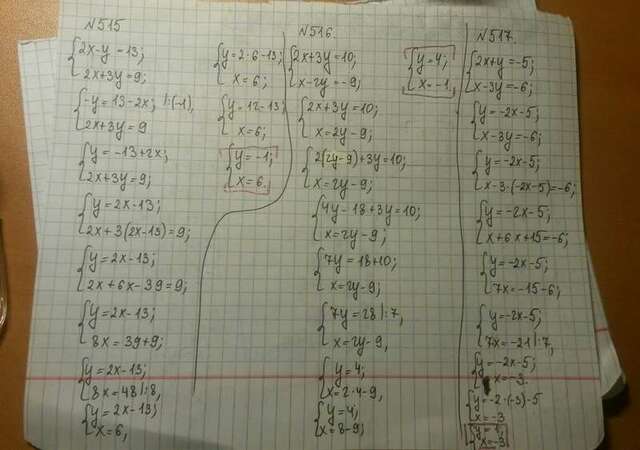 N515
2x-y=13;
2x+3y=9;
-y=13-2x; |:(-1),
2x+3y=9
y=-13+2x;
2x+3y=9;
y=2x-13;
2x+3(2x-13)=9;
y=2x-13;
2x+6x-39=9;
y=2x-13;
8x=39+9;
y=2x-13;
8x=48|:8,
y=2x-13;
x=6,
y=2·6-13;
x=6;
y=12-13;
x=6;
y=-1;
x=6.
N516.
2x+3y=10;
x-2y=-9;
2x+3y=10;
x=2y-9;
2(2y-9)+3y=10;
x=2y-9;
4y-18+3y=10;
x=2y-9;
7y=18+10;
x=2y-9;
7y=28|:7,
x=2y-9,
y=4;
x=2·4-9;
y=4;
x=8-9;
y=4;
x=-1.
N517.
2x+y=-5;
x-3y=-6;
y=-2x-5;
x-3y=-6;
y=-2x-5;
x-3·(-2x-5)=-6;
y=-2x-5;
x+6x+15=-6;
y=-2x-5;
7x=-15-6;
y=-2x-5;
7x=-21|:7,
y=-2x-5;
x=-3.
y=-2·(-3)-5
x=-3
y=1,
x=-3